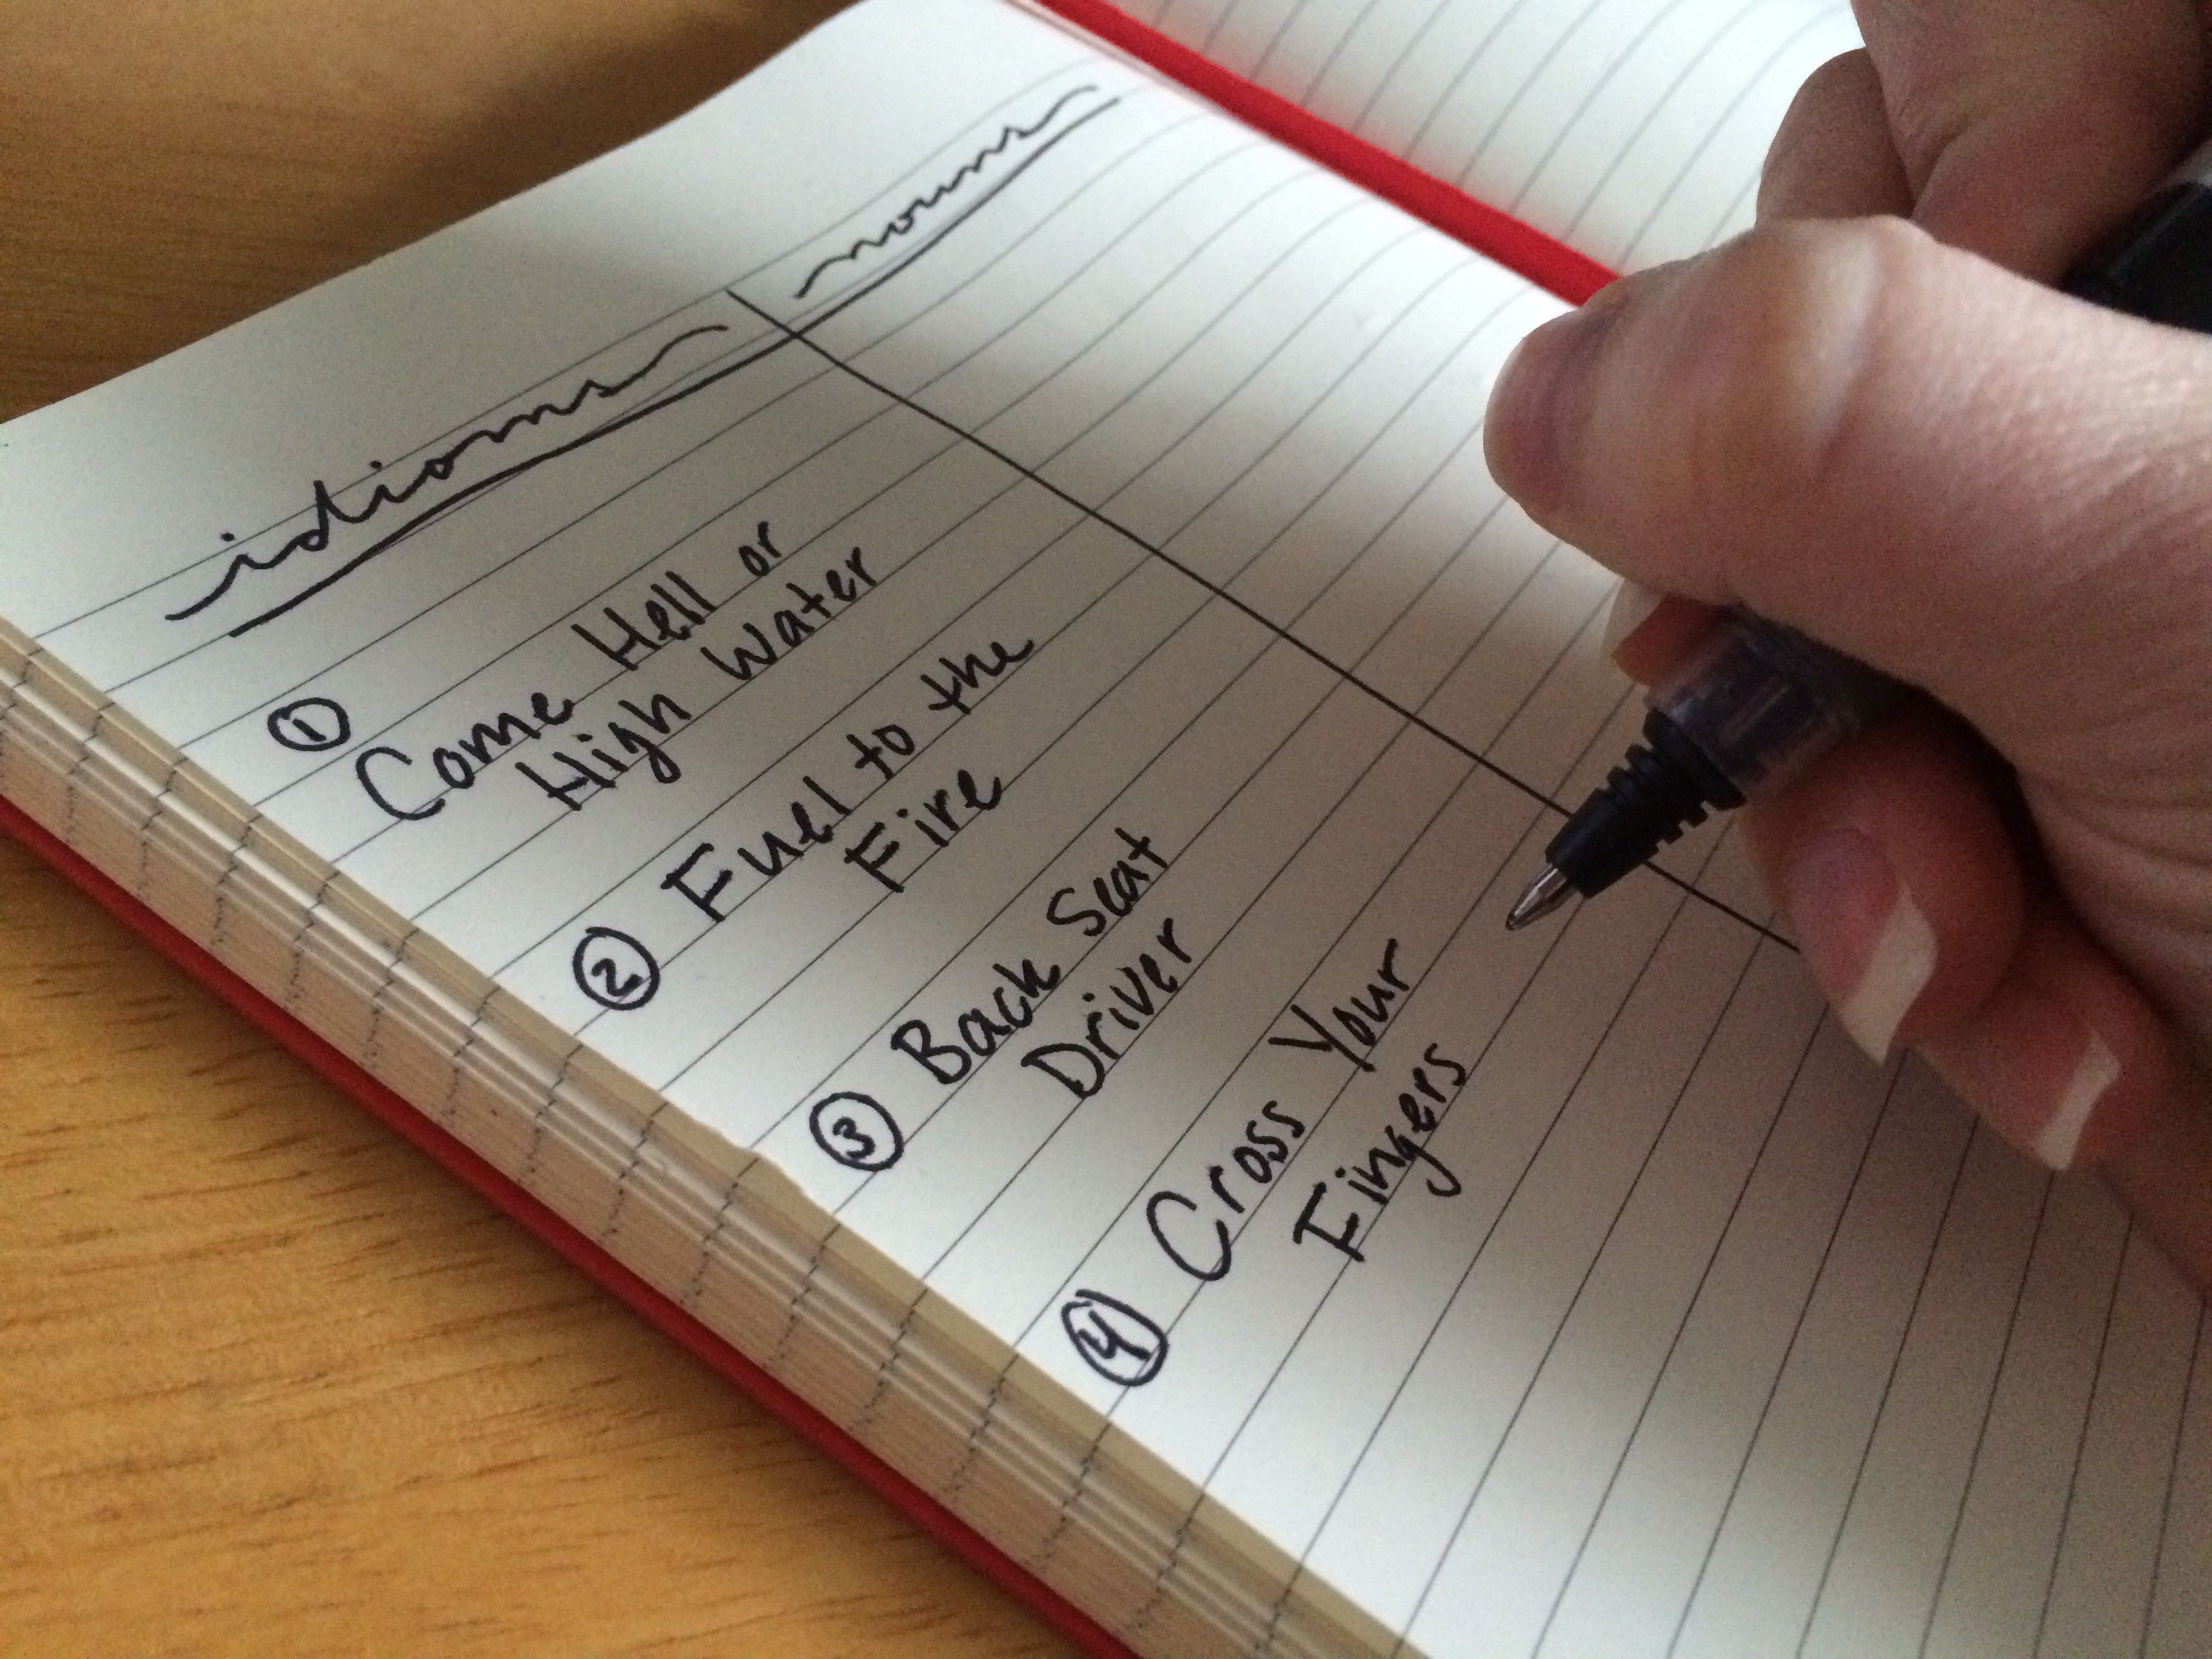 idioms nouns
① Come Hell or
High Water
② Fuel to the
Fire
③ Back Seat
Driver
④ Cross Your
Fingers